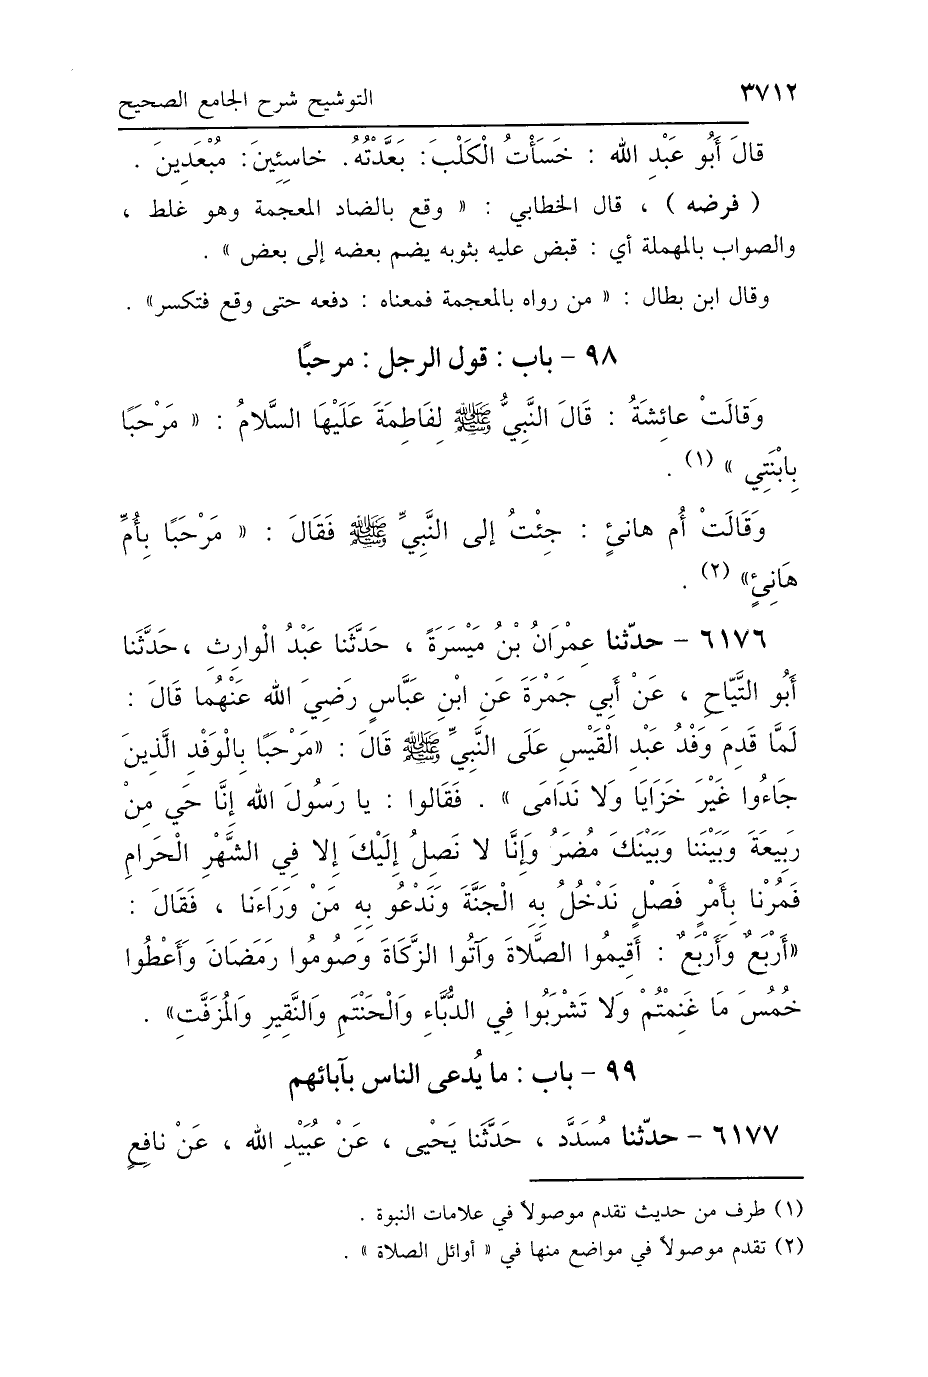 ٣٧١٢ التوشيح شرح الجامع الصحيح
قالَ أَبُو عَبْدِ الله : خَسَأْتُ الْكَلْبَ: بَعَّدْتُهُ. خاسِئِينَ: مُبْعَدِينَ .
( فرضه ) ، قال الخطابي : « وقع بالضاد المعجمة وهو غلط ،
والصواب بالمهملة أي : قبض عليه بثوبه يضم بعضه إلى بعض » .
وقال ابن بطال : « من رواه بالمعجمة فمعناه : دفعه حتى وقع فتكسر» .
٩٨ – باب : قول الرجل : مرحبًا
وَقالَتْ عائِشَةُ : قَالَ النَّبِيُّ ﷺ لِفَاطِمَةَ عَلَيْهَا السَّلامُ : « مَرْحَبًا
بِابْنَتِي » (١) .
وَقَالَتْ أُم هانئٍ : جِئْتُ إلى النَّبِيِّ ﷺ فَقَالَ : « مَرْحَبًا بِأُمِّ
هَانِئٍ» (٢) .
٦١٧٦ – حدّثنا عِمْرَانُ بْنُ مَيْسَرَةَ ، حَدَّثَنا عَبْدُ الْوارِث ، حَدَّثَنا
أَبُو التَّيّاحِ ، عَنْ أَبِي جَمْرَةَ عَنِ ابْنِ عَبَّاسٍ رَضِيَ الله عَنْهُما قَالَ :
لَمَّا قَدِمَ وَفْدُ عَبْدِ الْقَيْسِ عَلَى النَّبِيِّ ﷺ قَالَ : «مَرْحَبًا بِالْوَفْدِ الَّذِينَ
جَاءُوا غَيْرَ خَزَايَا وَلا نَدَامَى » . فَقَالوا : يا رَسُولَ الله إِنَّا حَي مِنْ
رَبِيعَةَ وَبَيْنَنا وَبَيْنَكَ مُضَرُ وَإِنَّا لا نَصِلُ إِلَيْكَ إِلا فِي الشَّهْرِ الْحَرامِ
فَمُرْنا بِأَمْرٍ فَصْلٍ نَدْخُلُ بِهِ الْجَنَّةَ وَنَدْعُو بِهِ مَنْ وَرَاءَنا ، فَقَالَ :
«أَرْبَعٌ وَأَرْبَعٌ : أَقِيمُوا الصَّلاةَ وَآتُوا الزَّكَاةَ وَصُومُوا رَمَضَانَ وَأَعْطُوا
خُمُسَ مَا غَنِمْتُمْ وَلا تَشْرَبُوا فِي الدُّبَّاءِ وَالْحَنْتَمِ وَالنَّقِيرِ وَالْمُزَفَّتِ» .
٩٩ – باب : ما يُدعى الناس بآبائهم
٦١٧٧ – حدّثنا مُسَدَّد ، حَدَّثَنا يَحْيى ، عَنْ عُبَيْدِ الله ، عَنْ نافِعٍ
(١) طرف من حديث تقدم موصولاً في علامات النبوة .
(٢) تقدم موصولاً في مواضع منها في « أوائل الصلاة » .